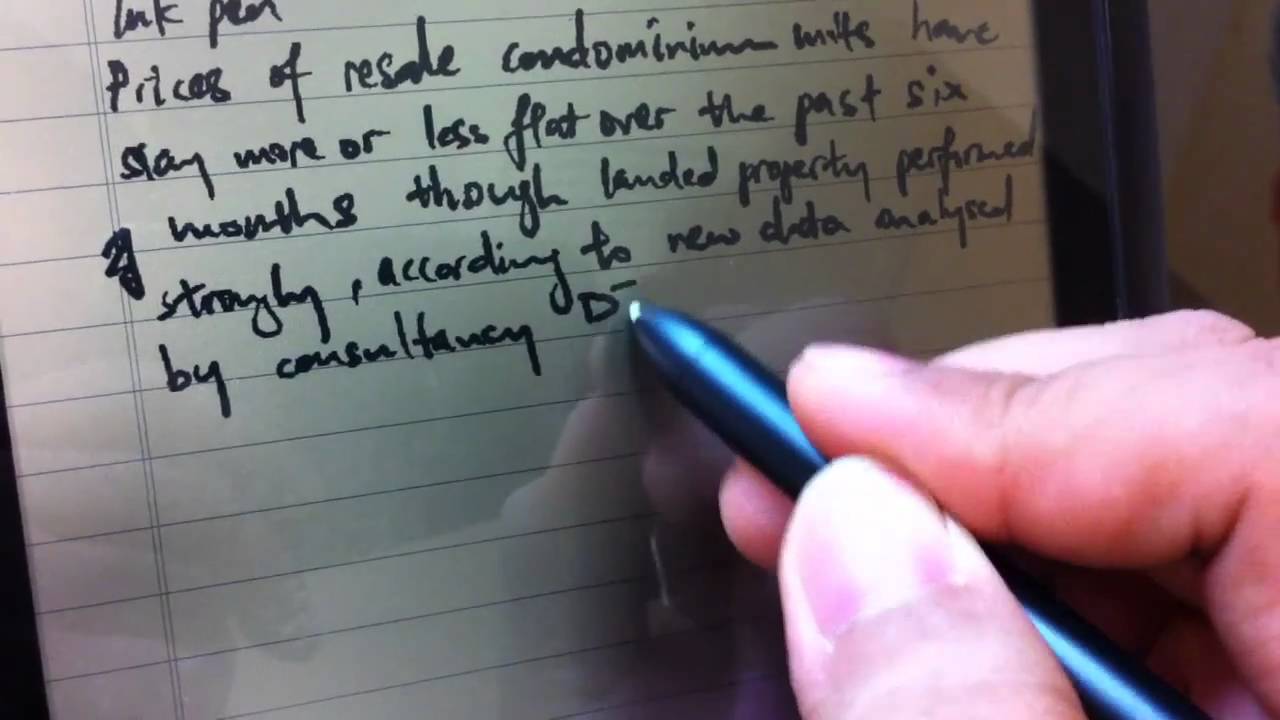 Ink pen
Prices of resale condominium units have
stay more or less flat over the past six
months though landed property performed
strongly, according to new data analysed
by consultancy D